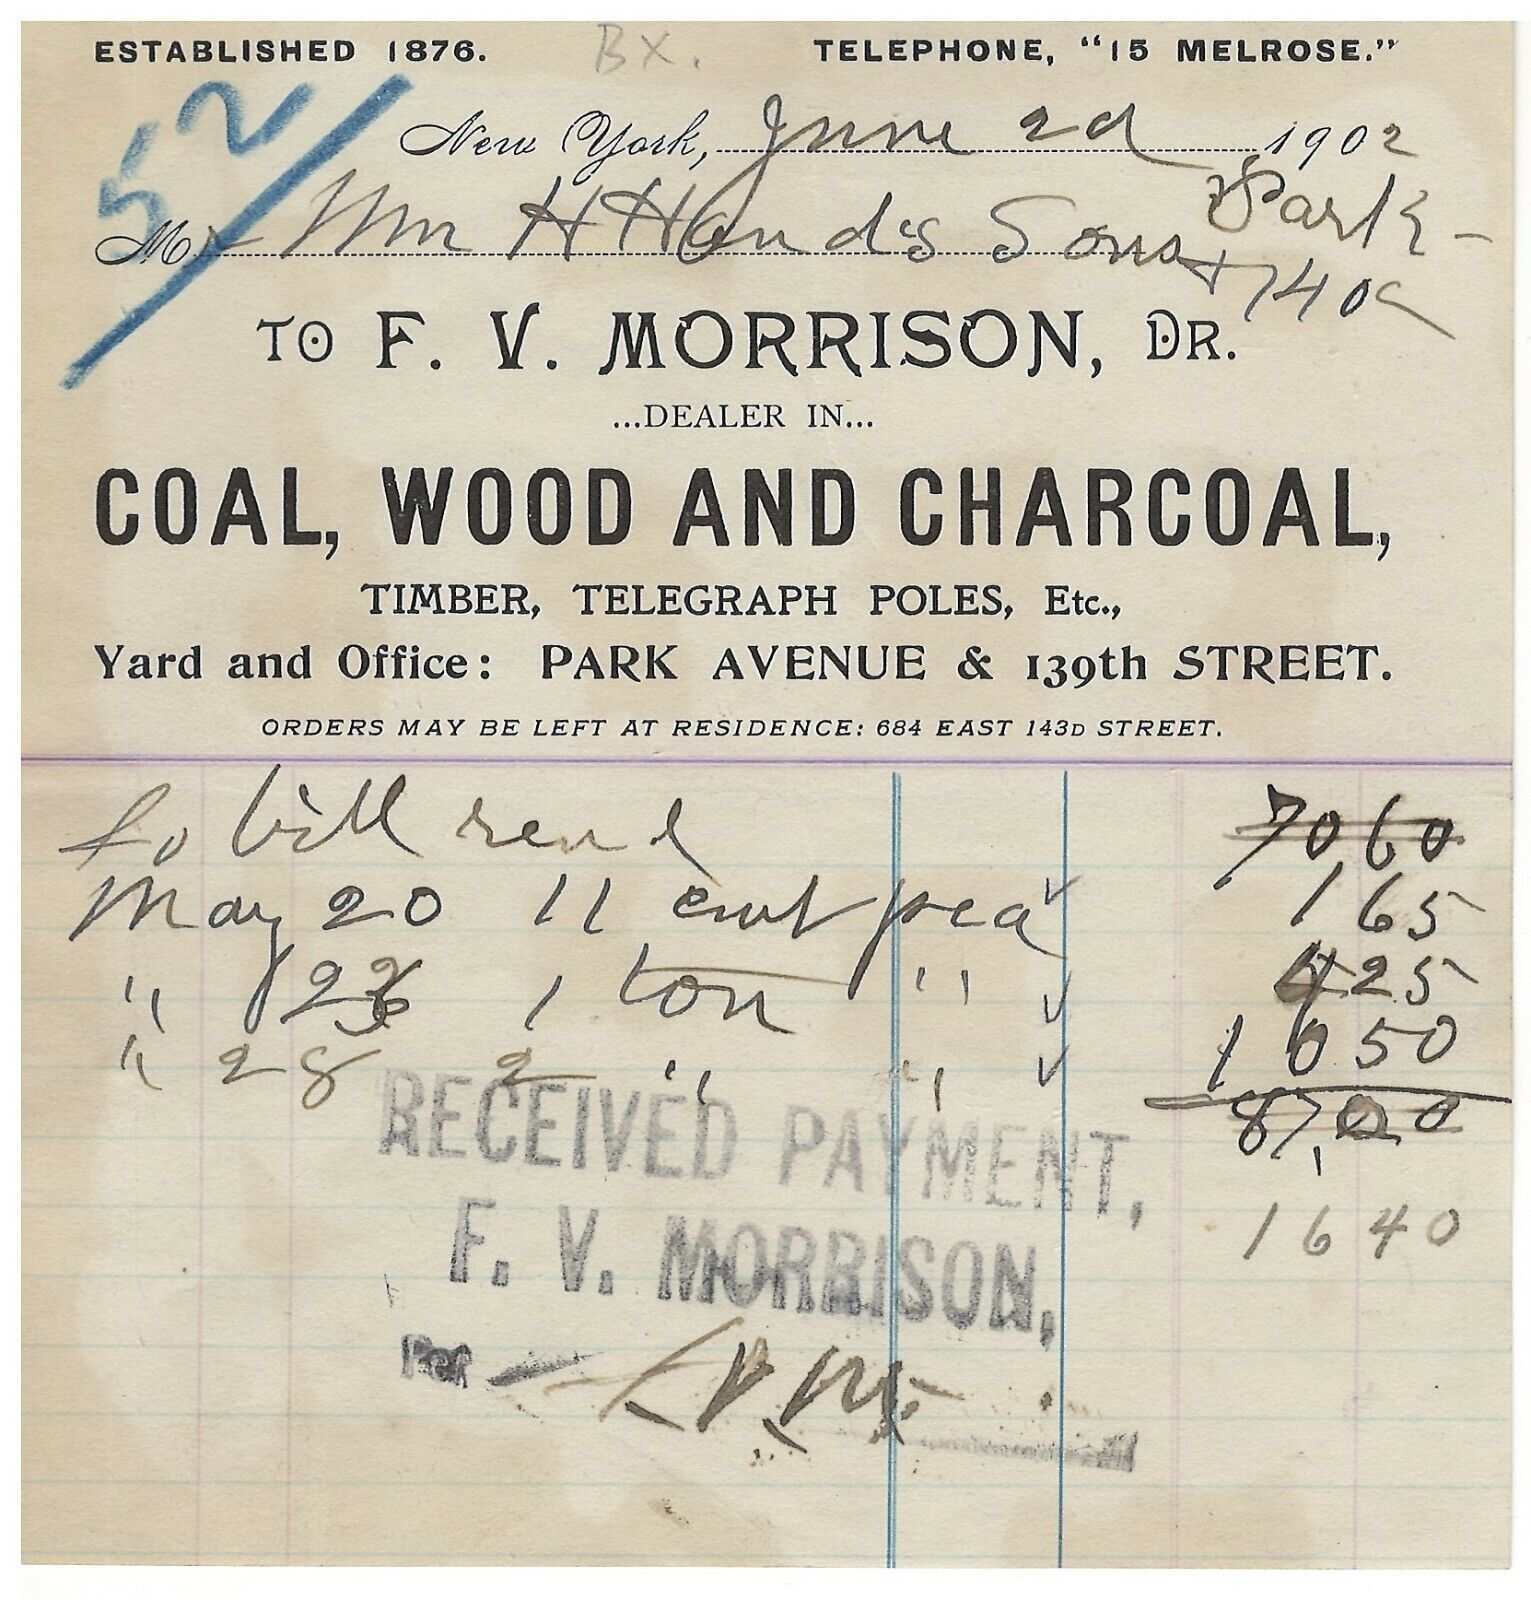 ESTABLISHED 1876. Bx. TELEPHONE, "15 MELROSE."
52
New York, June 2d 1902
Mr Wm H Hand's Sons Park
+ 140
TO F. V. MORRISON, DR.
...DEALER IN...
COAL, WOOD AND CHARCOAL,
TIMBER, TELEGRAPH POLES, Etc.,
Yard and Office: PARK AVENUE & 139th STREET.
ORDERS MAY BE LEFT AT RESIDENCE: 684 EAST 143D STREET.
To bill rend 70 60
May 20 11 cwt pea √ 1 65
" 23 1 ton " √ 4 25
" 28 2 " " √ 10 50
87,00
RECEIVED PAYMENT,
16 40
F. V. MORRISON,
Per F.V.M.